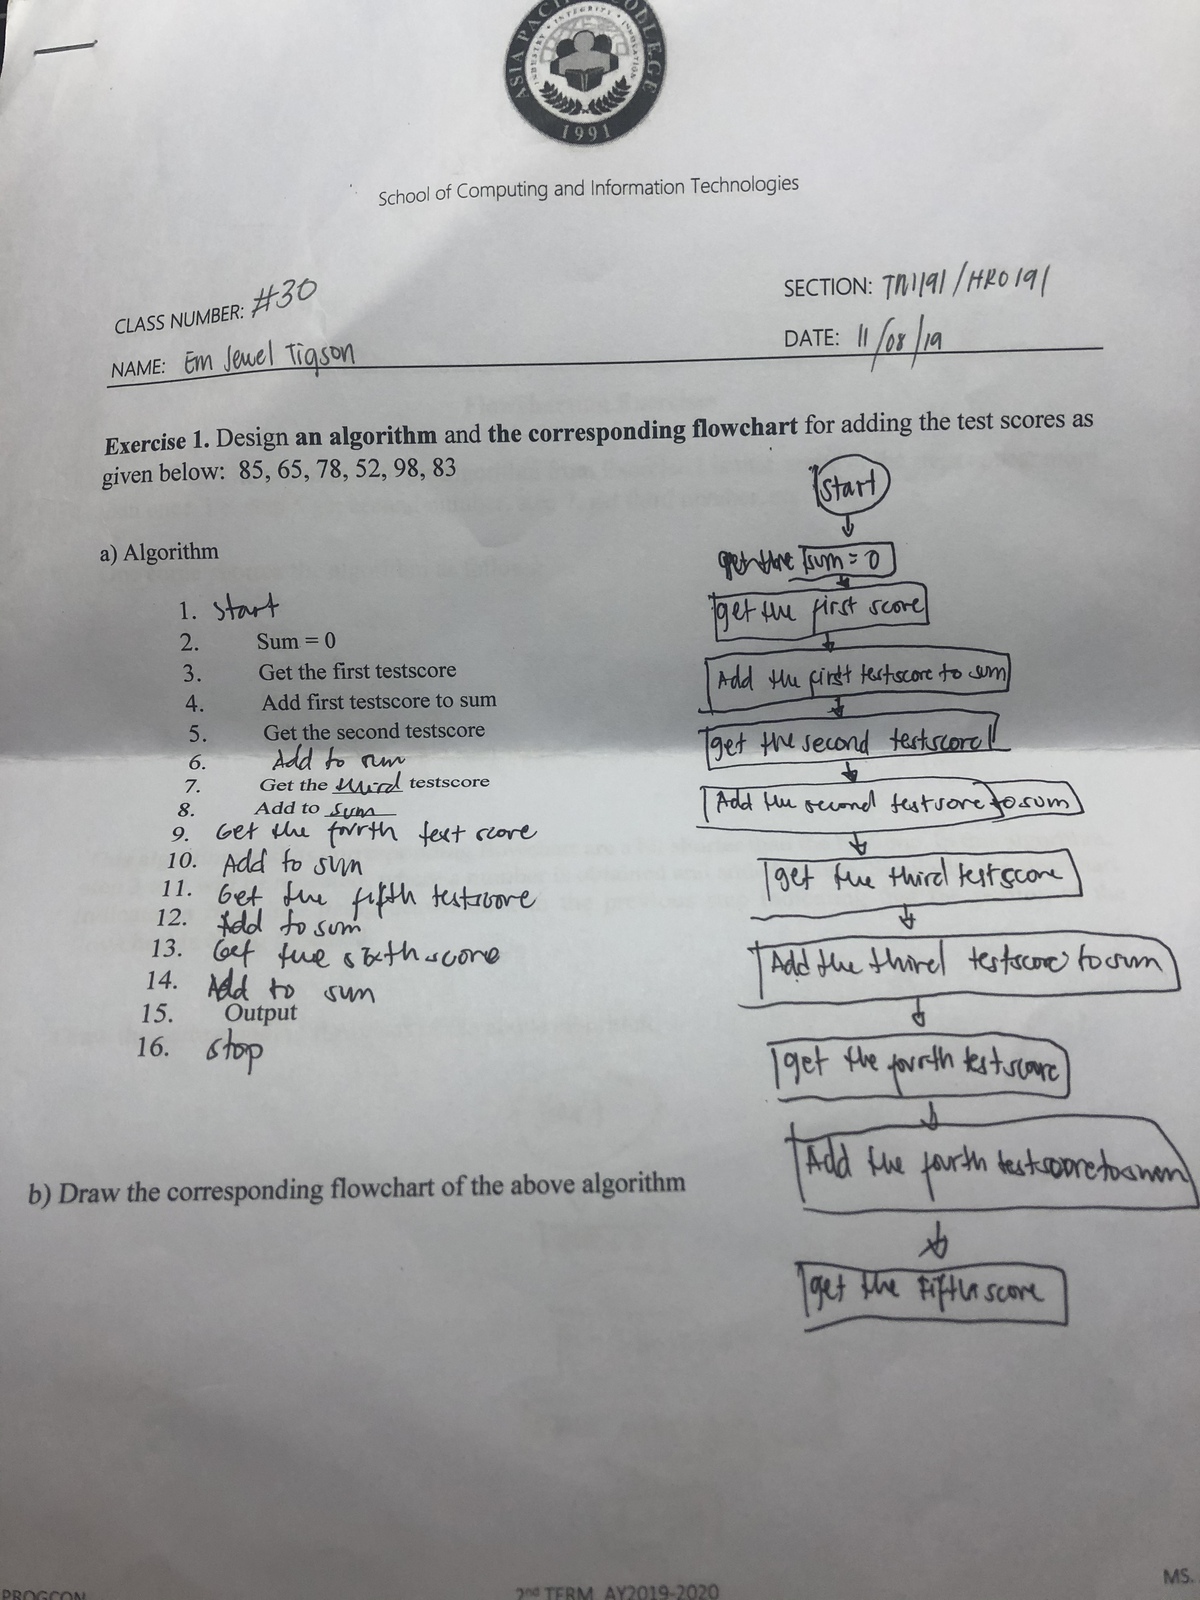 ASIA PACIFIC COLLEGE
INDUSTRY • INTEGRITY • INNOVATION
1991
School of Computing and Information Technologies
CLASS NUMBER: #30
SECTION: TN1191/HRO191
NAME: Em Jewel Tigson
DATE: 11/08/19
Exercise 1. Design an algorithm and the corresponding flowchart for adding the test scores as
given below: 85, 65, 78, 52, 98, 83
a) Algorithm
1. start
2. Sum = 0
3. Get the first testscore
4. Add first testscore to sum
5. Get the second testscore
6. Add to sum
7. Get the third testscore
8. Add to sum
9. Get the fourth test score
10. Add to sum
11. Get the fifth testscore
12. Add to sum
13. Get the sixth score
14. Add to sum
15. Output
16. stop
b) Draw the corresponding flowchart of the above algorithm
start
get the sum = 0
get the first score
Add the first testscore to sum
get the second testscore
Add the second testscore to sum
get the third testscore
Add the third testscore to sum
get the fourth testscore
Add the fourth testscore to sum
get the fifth score
PROGCON
2nd TERM AY2019-2020
MS.